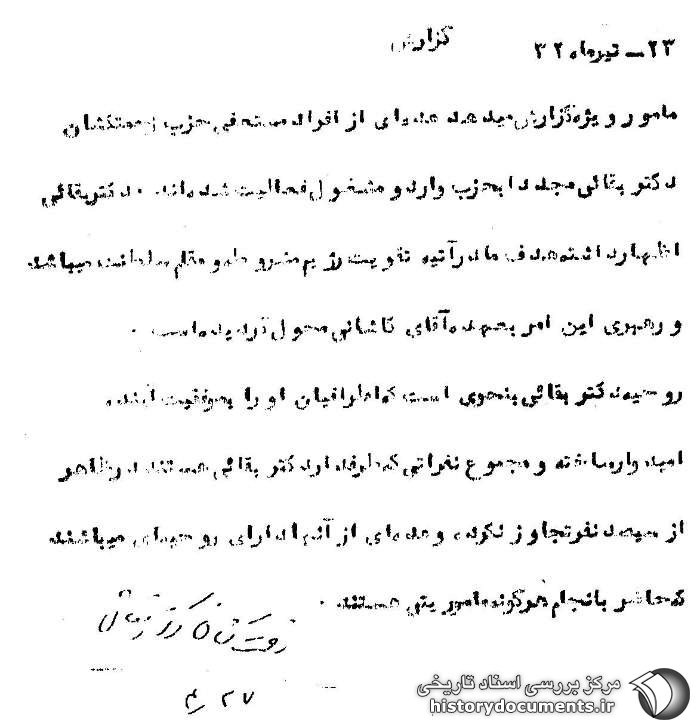 گزارش
۲۳ـ تیرماه ۳۲
مامور ویژه گزارش میدهد عده‌ای از افراد مستعفی حزب زحمتکشان
دکتر بقائی مجددا بحزب وارد و مشغول فعالیت شده‌اند . دکتر بقائی
اظهار داشته هدف ما در آتیه تقویت رژیم مشروطه و مقام سلطنت میباشد
و رهبری این امر بعهده آقای کاشانی محول گردیده است .
روحیه دکتر بقائی بنحوی است که اطرافیان او را بموفقیت آینده
امیدوار ساخته و مجموع نفراتی که طرفدار دکتر بقائی هستند در ظاهر
از سیصد نفر تجاوز نکرده و عده‌ای از آنها دارای روحیه‌ای میباشند
که حاضر بانجام هرگونه ماموریتی هستند .
زحمتکشان
۲۷ ر۴
مرکز بررسی اسناد تاریخی
historydocuments.ir